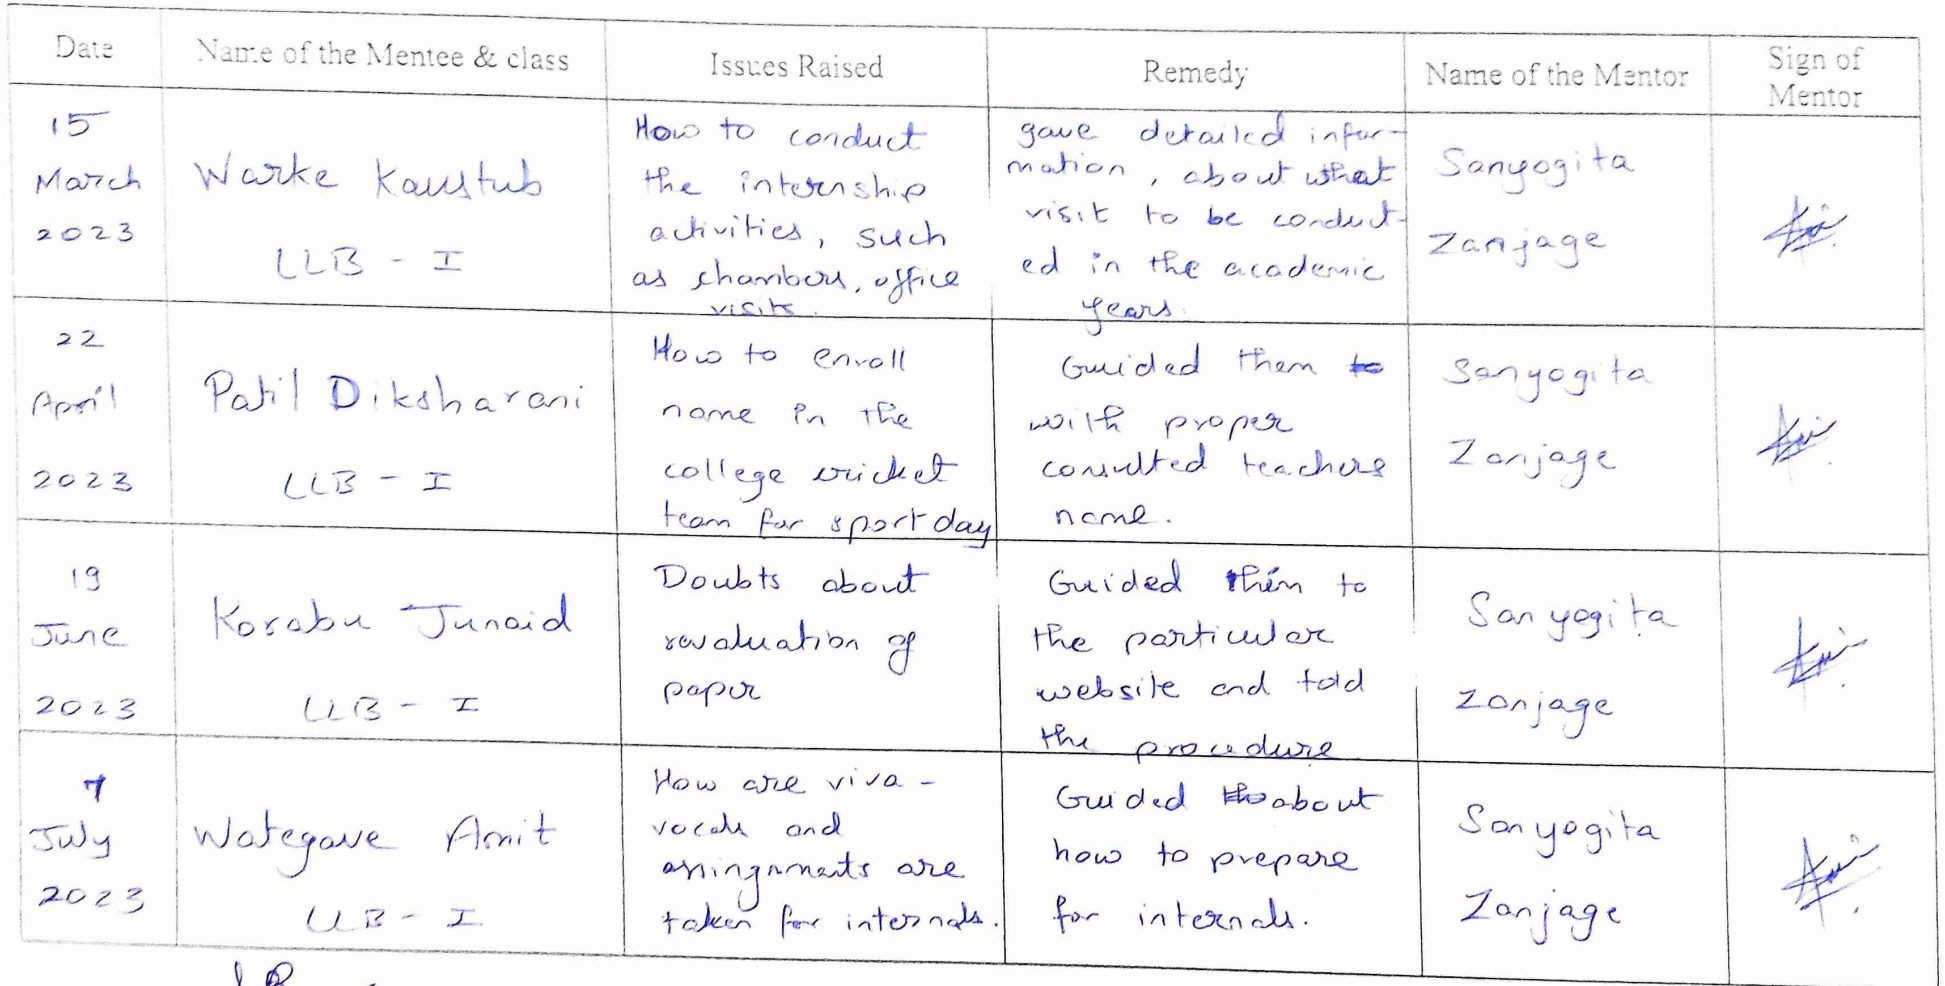 Date
Name of the Mentee & class
Issues Raised
Remedy
Name of the Mentor
Sign of
Mentor
15
March
2023
Warke Kaustub
LLB - I
How to conduct
the internship
activities, such
as chambers, office
visits.
gave detailed infor-
mation, about what
visit to be conduct-
ed in the academic
years.
Sanyogita
Zanjage
22
April
2023
Patil Diksharani
LLB - I
How to enroll
name in the
college cricket
team for sport day
Guided them to
with proper
consulted teachers
name.
Sanyogita
Zanjage
19
June
2023
Korabu Junaid
LLB - I
Doubts about
revaluation of
paper
Guided them to
the particular
website and told
the procedure
Sanyogita
Zanjage
7
July
2023
Wategave Amit
LLB - I
How are viva -
vocals and
assingnments are
taken for internals.
Guided about
how to prepare
for internals.
Sanyogita
Zanjage